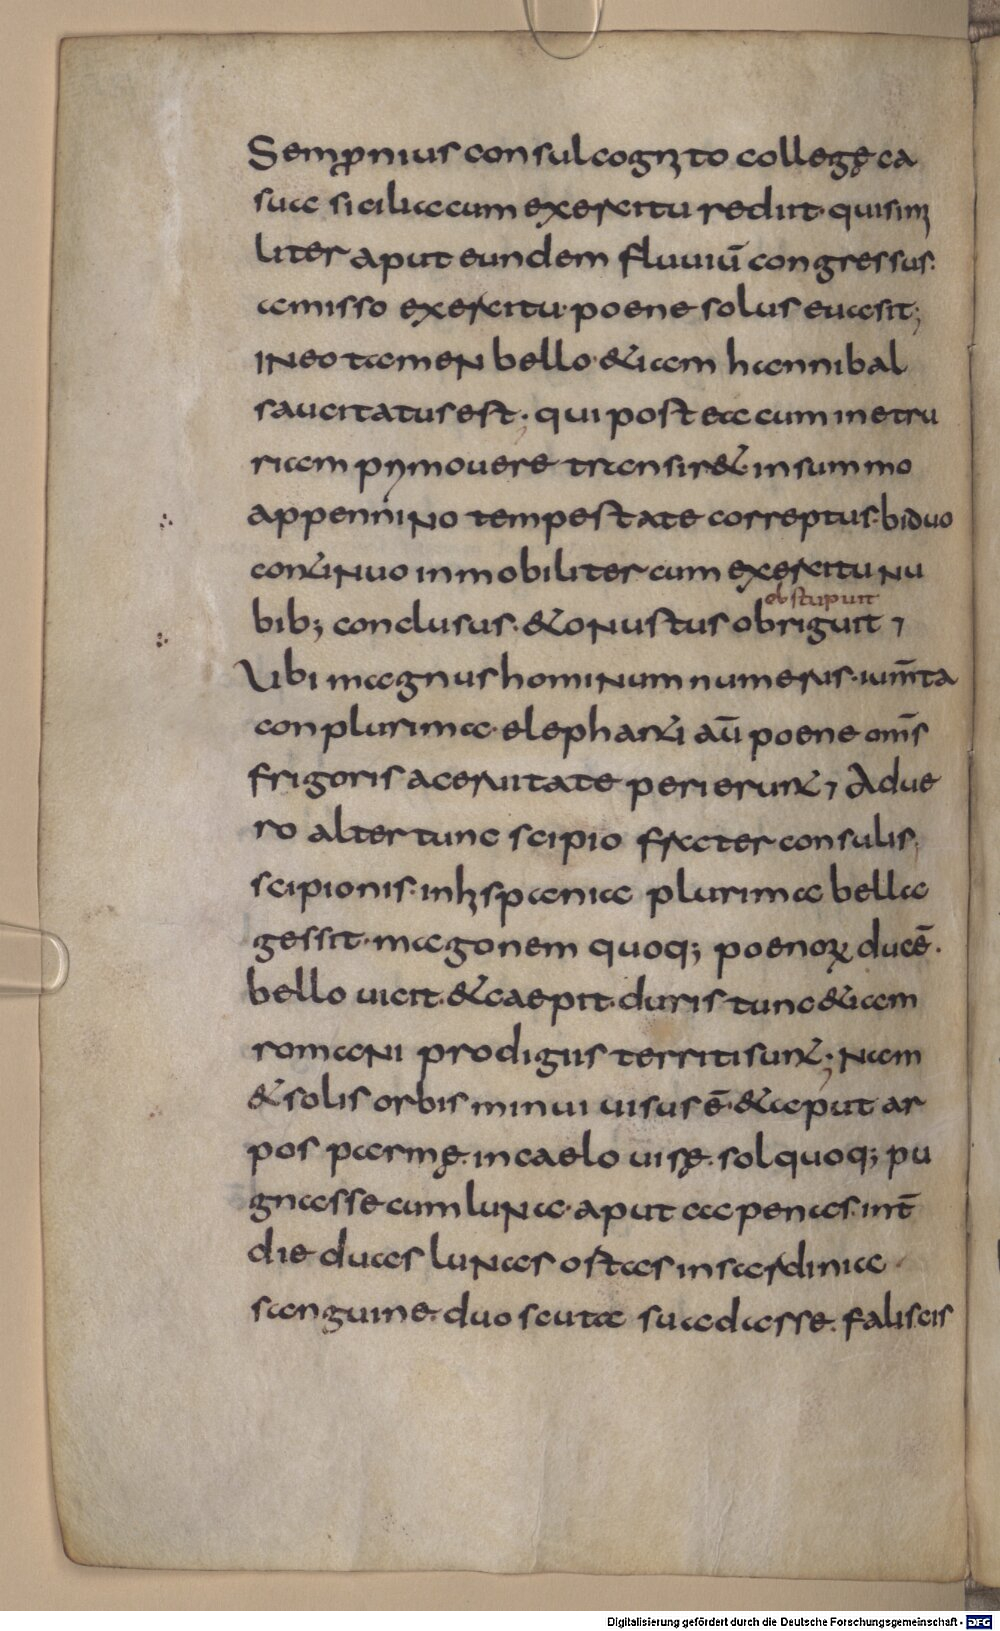 Semꝓnius consul cognito collegę ca
su a sicilia cum exercitu rediit· qui simi
liter aput eundem fluuiū congressus·
amisso exercitu· poene solus euasit;
IN eo tamen bello· & iam hannibal
sauciatatus est; qui post ea cum in etru
riam p̄mouere transir&· in summo
appennino tempestate correptus· biduo
continuo inmobiliter cum exercitu nu
bib; conclusus· & onustus obriguit ⁊
obstupuit
Ubi magnus hominum numerus· ium̄ta
con plurima· elephanti aū poene om̄s
frigoris aceruitate perierunt ⁊ Ad ue
ro alter tunc scipio frater consulis
scipionis· in hispania plurima bella
gessit· magonem quoq; poenoꝝ ducē·
bello uicit· & caepit· duris tunc & iam
romani prodigiis territi sunt; Nam
& solis orbis minui uisus ē· & aput ar
pos parmę· in caelo uisę· sol quoq; pu
gnasse cum luna· aput capenas· int̄
die duas lunas ostas in sardinia
sanguine· duo scuta suadasse· faliscis
Digitalisierung gefördert durch die Deutsche Forschungsgemeinschaft - DFG